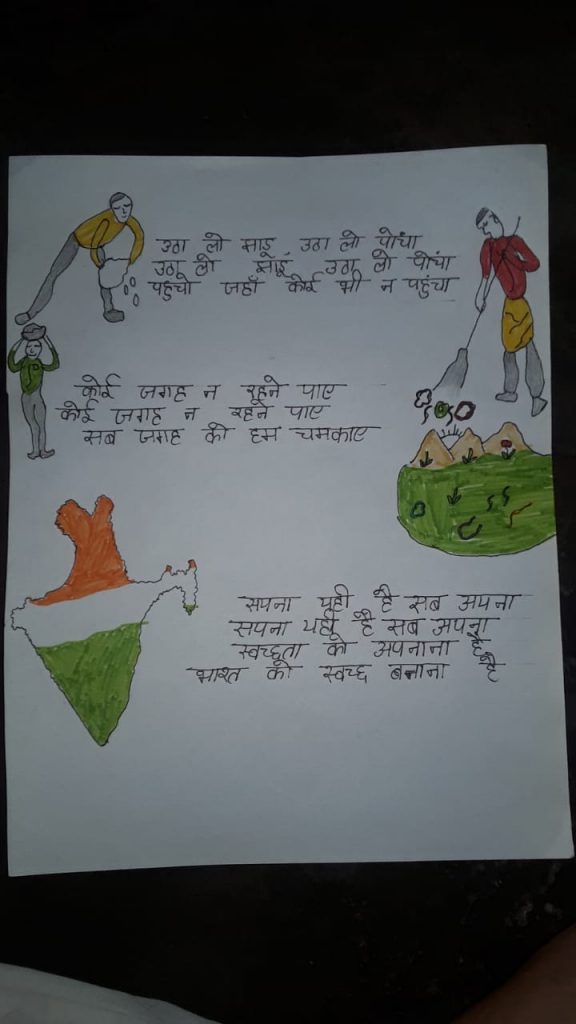 उठा लो झाड़ू उठा लो पोंचा
उठा लो झाड़ू उठा लो पोंचा
पहुंचो जहाँ कोई भी न पहुंचा
कोई जगह न रहने पाए
कोई जगह न रहने पाए
सब जगह को हम चमकाए
सपना यही है सब अपना
सपना यही है सब अपना
स्वच्छता को अपनाना है
भारत को स्वच्छ बनाना है